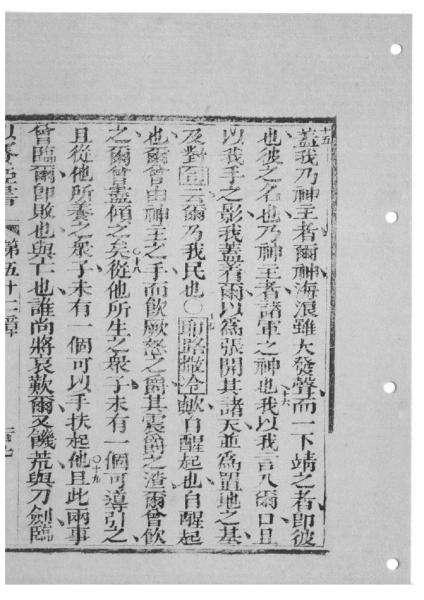 十五
蓋我乃神主者爾神海浪雖大發聲而一下靖之者即彼
也彼之名也乃神主者諸軍之神也十六我以我言入爾口且
以我手之影我蓋着爾以爲張開其諸天並爲置地之基
及對云爾乃我民也〇耶路撒冷歟自醒起也自醒起
也爾曾由神主之手而飲厥怒之爵其震爵之渣爾曾飲
之爾曾盡傾之矣十八從他所生之衆子未有一個可導引之
且從他所養之衆子未有一個可以手扶起他十九且此兩事
曾臨爾即敗也與亡也誰尚將哀歎爾又饑荒與刀劍臨
以賽亞書 第五十一章